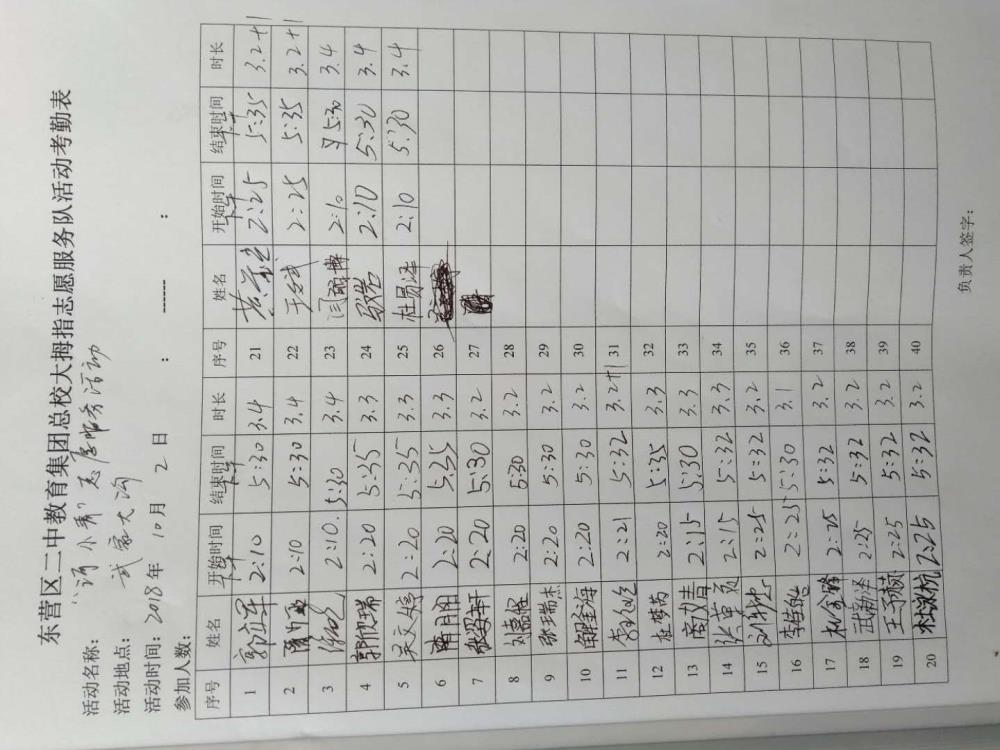 东营区二中教育集团总校大拇指志愿服务队活动考勤表
活动名称：“河小青”志愿服务活动
活动地点：武家大沟
活动时间：2018年 10月 2日 ： ------ ：
参加人数：
序号 姓名 开始时间 结束时间 时长 序号 姓名 开始时间 结束时间 时长
1 2:10 5:30 3.4 21 2:25 5:35 3.2+1
2 2:10 5:30 3.4 22 于斌 2:25 5:35 3.2+1
3 2:10 5:30 3.4 23 闫 博 2:10 5:30 3.4
4 郭欣瑞 2:20 5:35 3.3 24 2:10 5:30 3.4
5 吴文婷 2:20 5:35 3.3 25 杜易泽 2:10 5:30 3.4
6 2:20 5:35 3.3 26
7 张 轩 2:20 5:30 3.2 27
8 刘嘉 2:20 5:30 3.2 28
9 张瑞杰 2:20 5:30 3.2 29
10 海 2:20 5:30 3.2 30
11 李 2:21 5:32 3.2+1 31
12 杜梦芮 2:20 5:35 3.3 32
13 商 2:15 5:30 3.3 33
14 张 2:15 5:32 3.3 34
15 刘 2:25 5:32 3.2 35
16 李 2:25 5:30 3.1 36
17 2:25 5:32 3.2 37
18 武新泽 2:25 5:32 3.2 38
19 王子 2:25 5:32 3.2 39
20 杜洪杭 2:25 5:32 3.2 40
负责人签字：